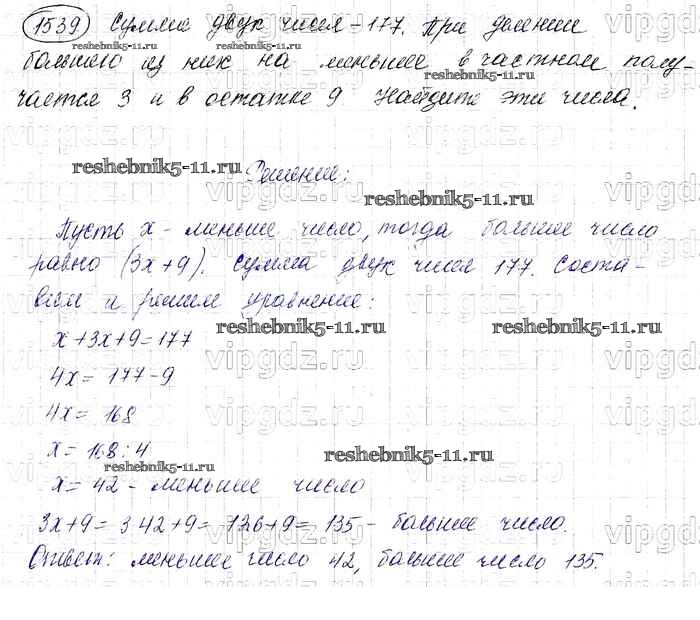 1539 Сумма двух чисел – 177. При делении
большего из них на меньшее в частном полу-
чается 3 и в остатке 9 Найдите эти числа.
Решение:
Пусть x – меньшее число, тогда большее число
равно (3x+9). Сумма двух чисел 177. Соста-
вим и решим уравнение:
x+3x+9=177
4x= 177-9
4x= 168
x= 168:4
x= 42 - меньшее число
3x+9= 3·42+9= 126+9= 135 - большее число.
Ответ: меньшее число 42, большее число 135.
reshebnik5-11.ru
reshebnik5-11.ru
reshebnik5-11.ru
reshebnik5-11.ru
reshebnik5-11.ru
reshebnik5-11.ru
reshebnik5-11.ru
reshebnik5-11.ru
vipgdz.ru